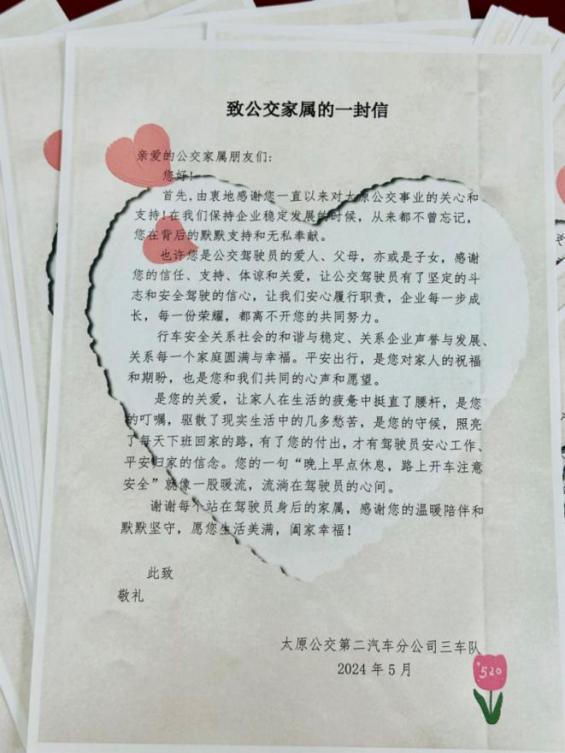 致公交家属的一封信
亲爱的公交家属朋友们：
您好！
首先，由衷地感谢您一直以来对太原公交事业的关心和
支持！在我们保持企业稳定发展的时候，从来都不曾忘记，
您在背后的默默支持和无私奉献。
也许您是公交驾驶员的爱人、父母，亦或是子女，感谢
您的信任、支持、体谅和关爱，让公交驾驶员有了坚定的斗
志和安全驾驶的信心，让我们安心履行职责，企业每一步成
长，每一份荣耀，都离不开您的共同努力。
行车安全关系社会的和谐与稳定、关系企业声誉与发展、
关系每一个家庭圆满与幸福。平安出行，是您对家人的祝福
和期盼，也是您和我们共同的心声和愿望。
是您的关爱，让家人在生活的疲惫中挺直了腰杆，是您
的叮嘱，驱散了现实生活中的几多愁苦，是您的守候，照亮
了每天下班回家的路，有了您的付出，才有驾驶员安心工作、
平安归家的信念。您的一句“晚上早点休息，路上开车注意
安全”就像一股暖流，流淌在驾驶员的心间。
谢谢每个站在驾驶员身后的家属，感谢您的温暖陪伴和
默默坚守，愿您生活美满，阖家幸福！
此致
敬礼
太原公交第二汽车分公司三车队
2024年5月
520